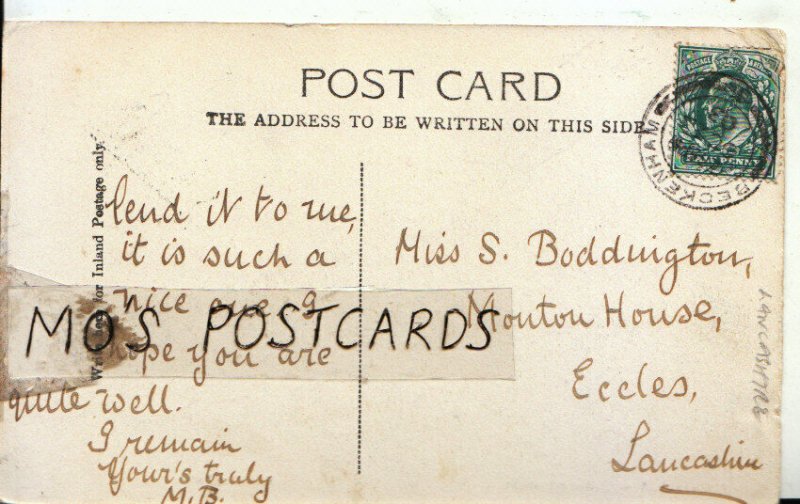 POST CARD
THE ADDRESS TO BE WRITTEN ON THIS SIDE.
for Inland Postage only.
lend it to me,
it is such a
nice one I
hope you are
quite well.
I remain
Your's truly
M.B.
Miss S. Boddington,
Monton House,
Eccles,
Lancashire
LANCASHIRE
BECKENHAM
HALFPENNY
MOS POSTCARDS